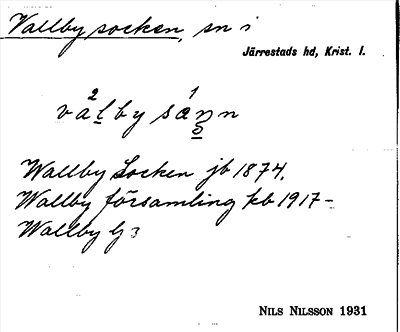 Vallby socken, sn i
Järrestads hd, Krist. l.
valby sänn
Wallby Socken jb 1874,
Wallby församling kb 1917-
Wallby
NILS NILSSON 1931